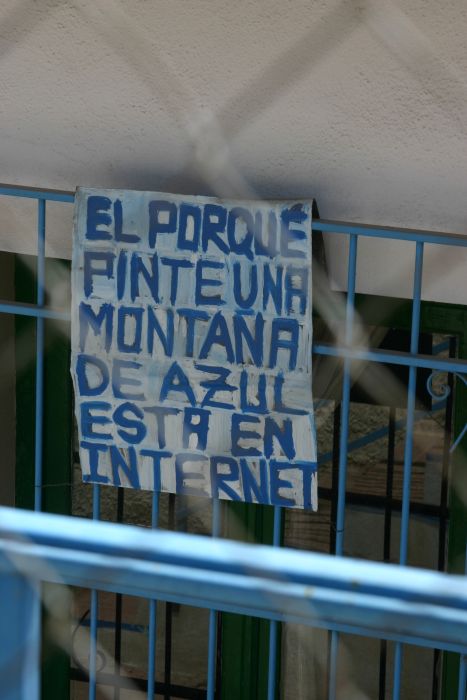 EL PORQUÉ
PINTE UNA
MONTAÑA
DE AZUL
ESTÁ EN
INTERNET